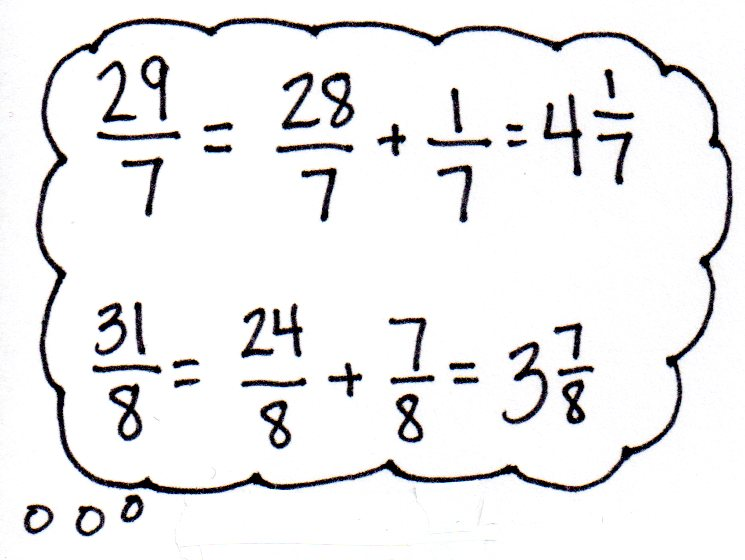 29/7 = 28/7 + 1/7 = 4 1/7
31/8 = 24/8 + 7/8 = 3 7/8